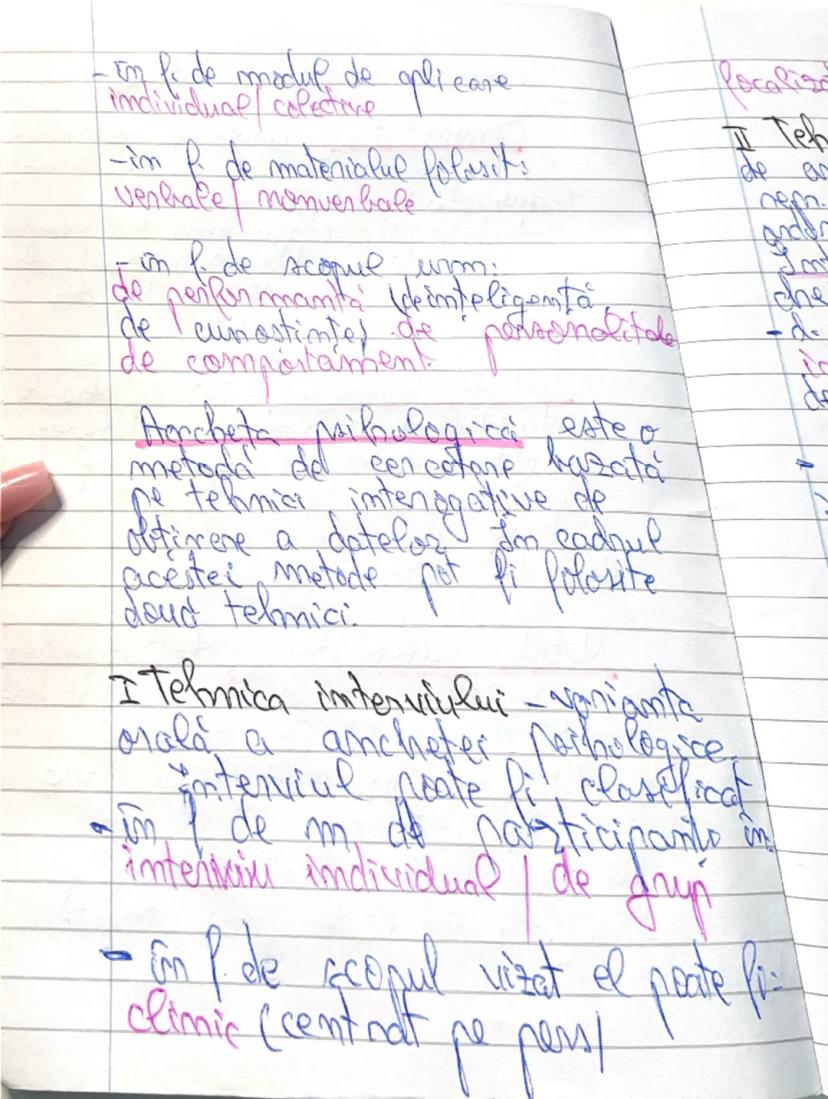 - în f. de modul de aplicare
individual/colective
-în f. de materialul folosit:
verbale/nonverbale
- în f. de scopul urm:
de performanță (de inteligență,
de cunoștințe) de personalitate
de comportament.
Ancheța psihologică este o
metodă de cercetare bazată
pe tehnici interogative de
obținere a datelor În cadrul
acestei metode pot fi folosite
două tehnici.
I Tehnica interviului - varianta
orală a anchetei psihologice.
Interviul poate fi clasificat
- în f de nr de participanți în
interviu individual / de grup
- în f. de scopul vizat el poate fi:
clinic (centrat pe pers)
II Teh
de